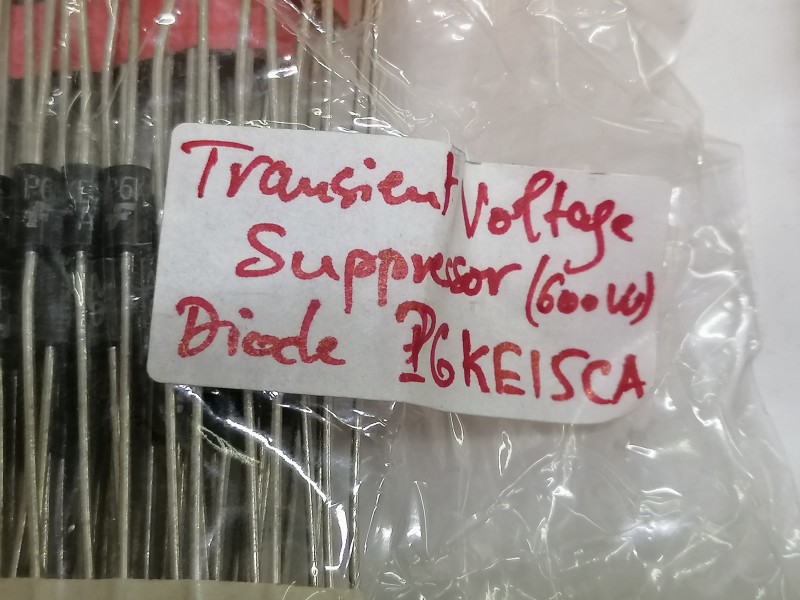 Transient Voltage
Suppressor (600W)
Diode P6KE15CA
P6
P6K